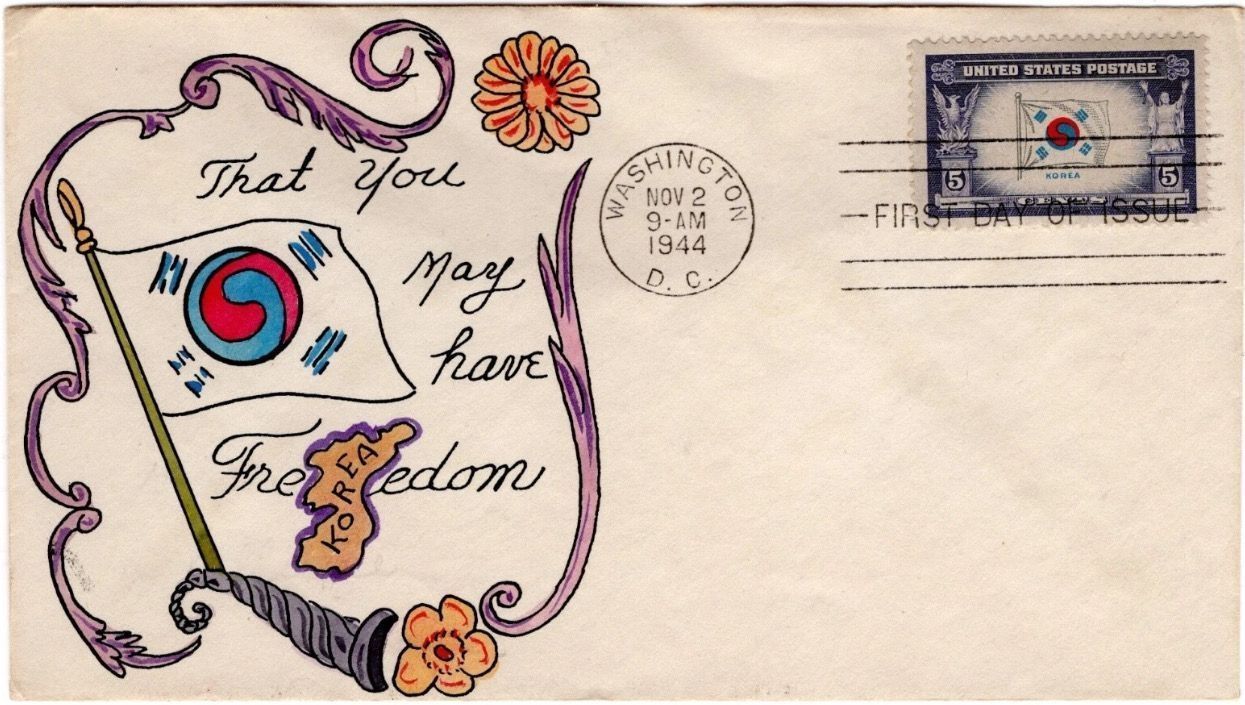 That You
May
have
Freedom
KOREA
WASHINGTON
NOV 2
9-AM
1944
D. C.
UNITED STATES POSTAGE
KOREA
5 5
FIRST DAY OF ISSUE